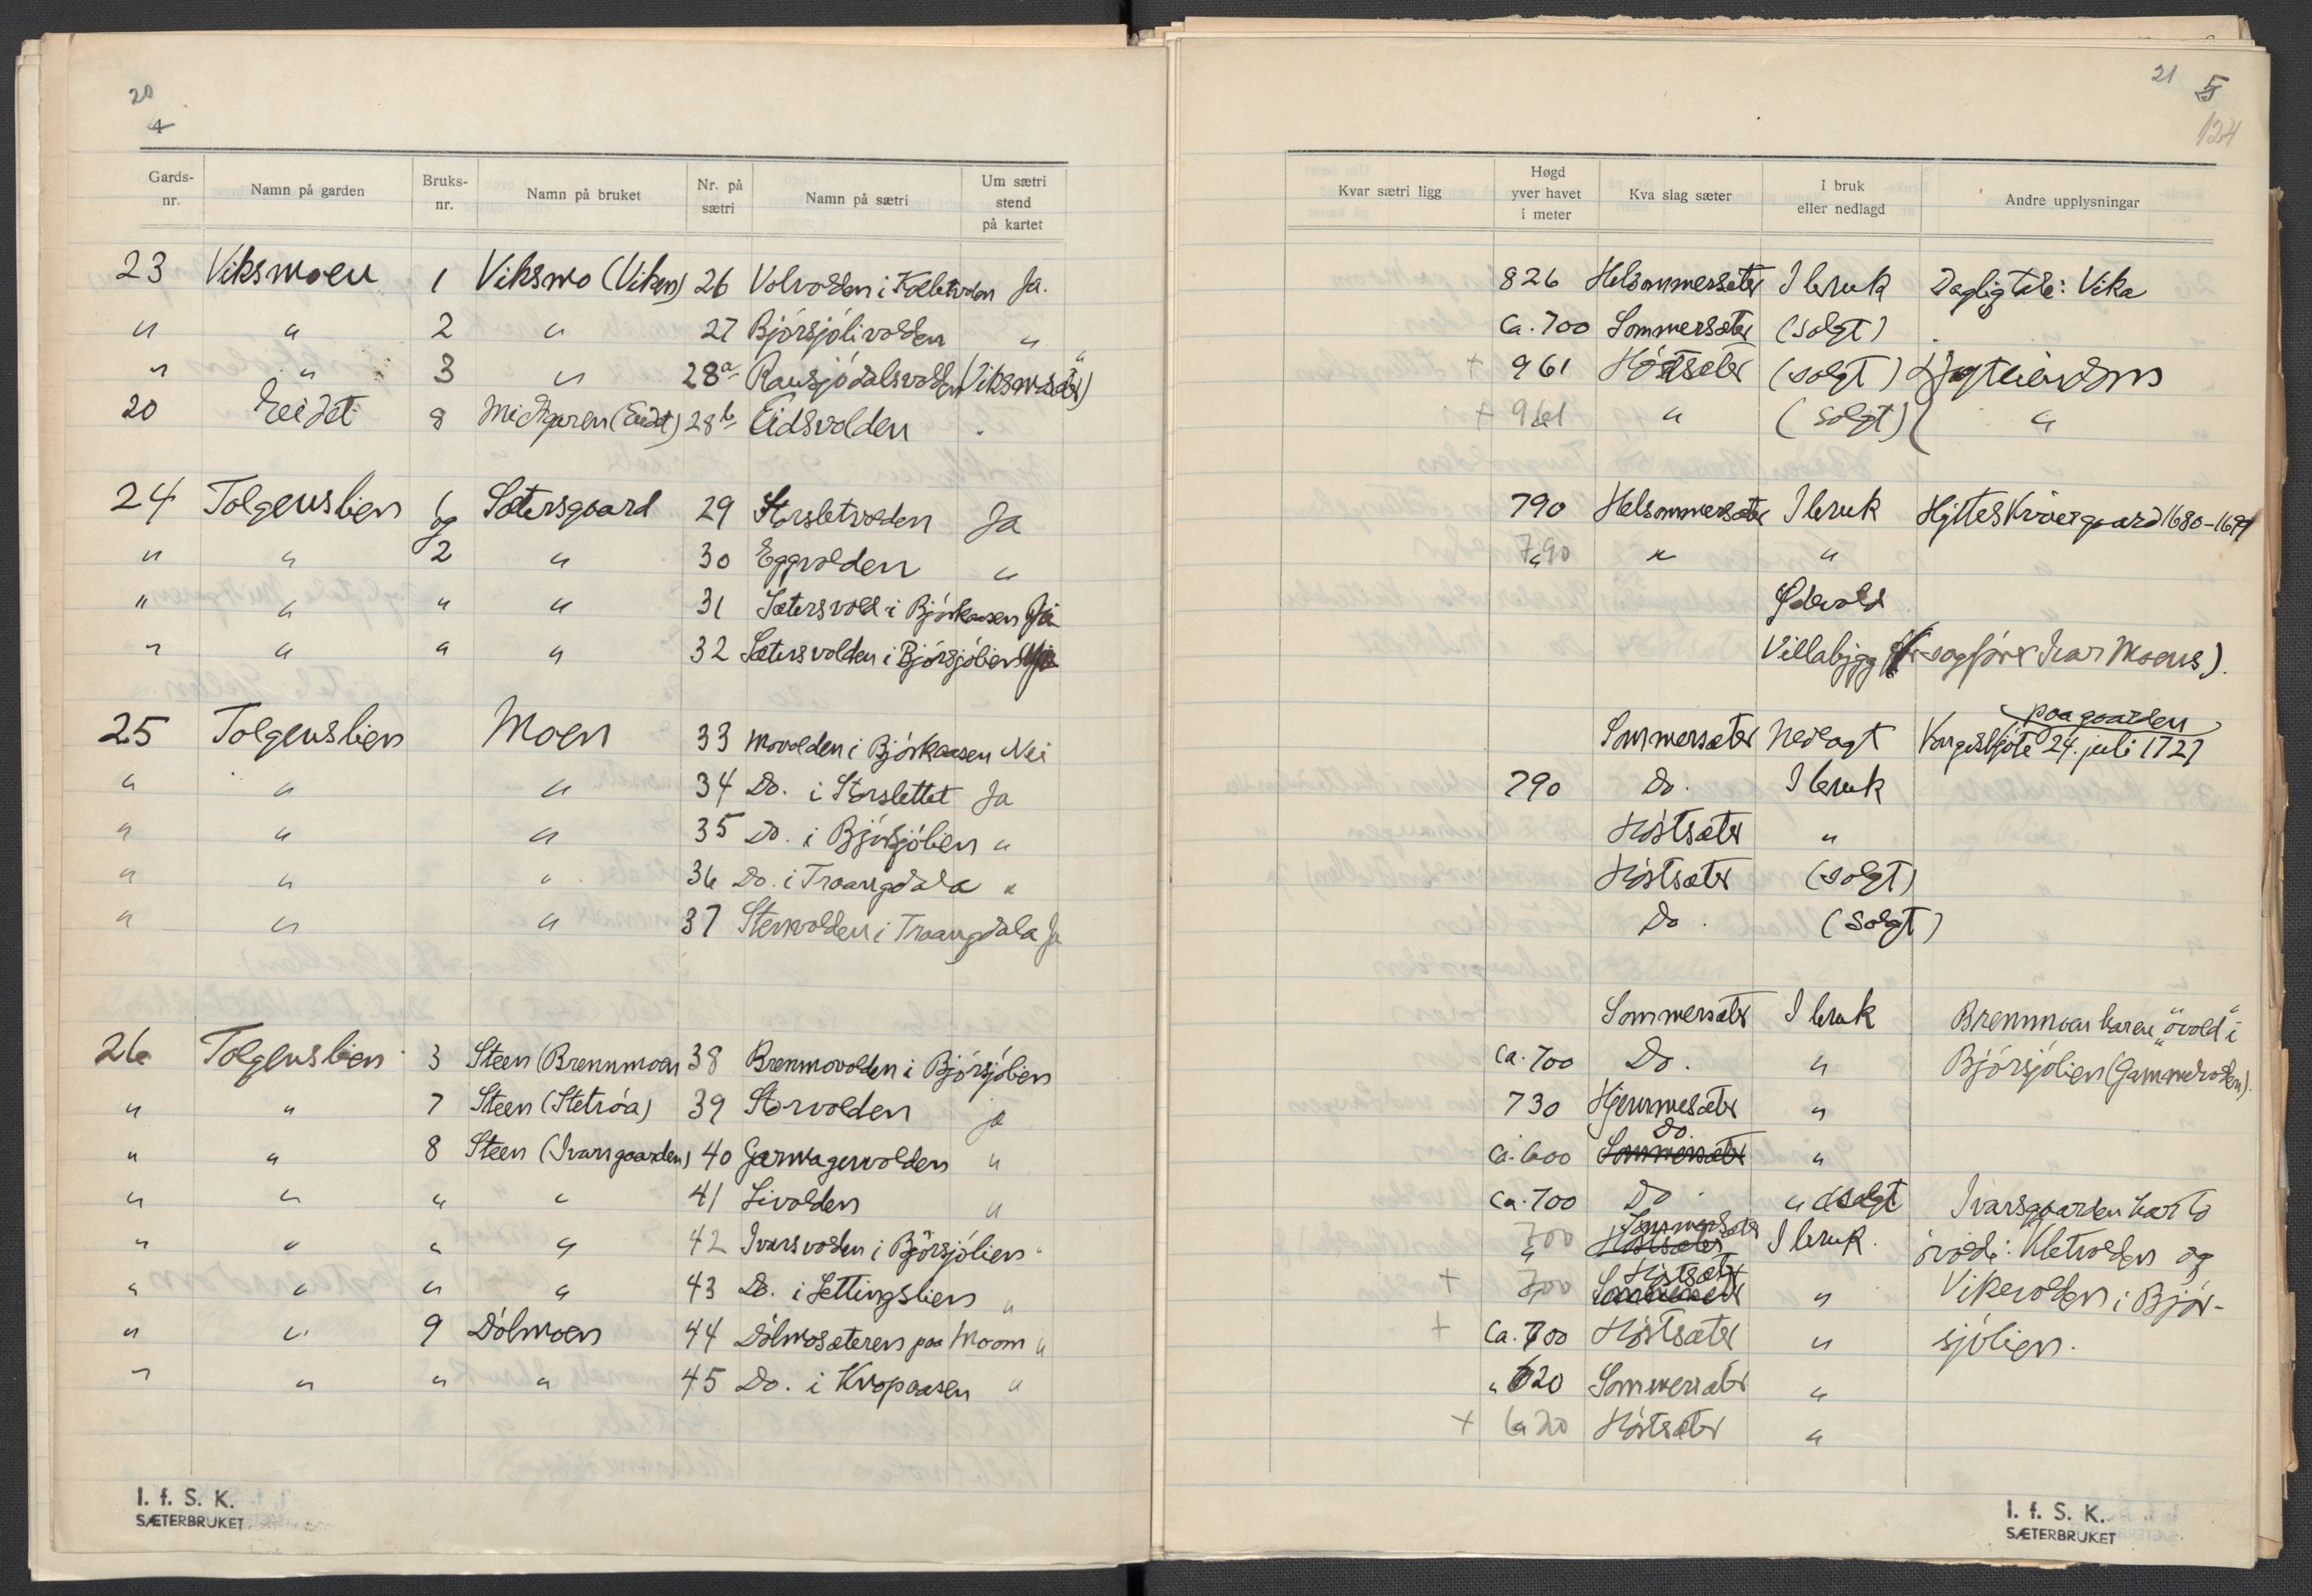 20
4
Gards-nr. Namn på garden Bruks-nr. Namn på bruket Nr. på sætri Namn på sætri Um sætri stend på kartet
23 Viksmoen 1 Viksmo (Viken) 26 Volvolden i Kolbetvolen Ja.
" " 2 " 27 Bjórsjólivolden "
" " 3 " 28a Rausjódalsvolden (Viksmosæter) "
20 Eidet 8 Midtgaren (Eidet) 28b Eidsvolden
24 Tolgenslien 1 Sætersgaard 29 Storsletvolden Ja
og
" " 2 " 30 Eggvolden "
" " " " 31 Sætersvold i Bjórkaasen Ja
" " " " 32 Sætersvolden i Bjórsjólien Ja
25 Tolgenslien Moen 33 Movolden i Bjórkaasen Nei
" " " 34 Do. i Storslettet Ja
" " " 35 Do. i Bjórsjólien "
" " " 36 Do. i Traangdala "
" " " 37 Stenvolden i Traangdala Ja
26 Tolgenslien 3 Steen (Brennmoen 38 Brenmovolden i Bjórsjólien
" " 7 Steen (Stetróa) 39 Storvolden ja
" " 8 Steen (Ivarsgaarden) 40 Garmagervolden "
" " " " 41 Livolden "
" " " " 42 Ivarsvolden i Bjórsjólien "
" " " " 43 Do. i Lettingslien "
" " 9 Dólmoen 44 Dólmosæteren paa Moom "
" " " " 45 Do. i Kvopaasen "
I. f. S. K.
SÆTERBRUKET
21 5
124
Kvar sætri ligg Høgd yver havet i meter Kva slag sæter I bruk eller nedlagd Andre upplysningar
826 Helsommersæter I bruk Dagligtale: Vika
ca. 700 Sommersæter (solgt)
+ 961 Hóstsæter (solgt) Jagteiendom
+ 961 " (solgt) "
790 Helsommersæter I bruk Hytteskrivergaard 1680-1699
790 " "
Ødevold
Villabygg (O.r.sagfører Ivar Moens).
paa gaarden
Sommersæter Nedlagt Kongeskjóte 24. juli 1727
790 Do. I bruk
Hóstsæter "
Hóstsæter (solgt)
Do. (solgt)
Sommersæter I bruk Brennmoen har en "óvold" i
ca. 700 Do. " Bjórsjólien (Gammelvolden).
730 Hjemmesæter "
Do.
ca. 600 Sommersæter "
ca. 700 Do. udsolgt Ivarsgaarden har to
Sommersæter
700 Hóstsæter I bruk. óvolde: Kletvolden og
Hóstsæter
+ 700 Sommersæter " Vikevolden i Bjór-
+ ca. 700 Hóstsæter " sjólien.
" 620 Sommersæter "
+ 620 Hóstsæter "
I. f. S. K.
SÆTERBRUKET